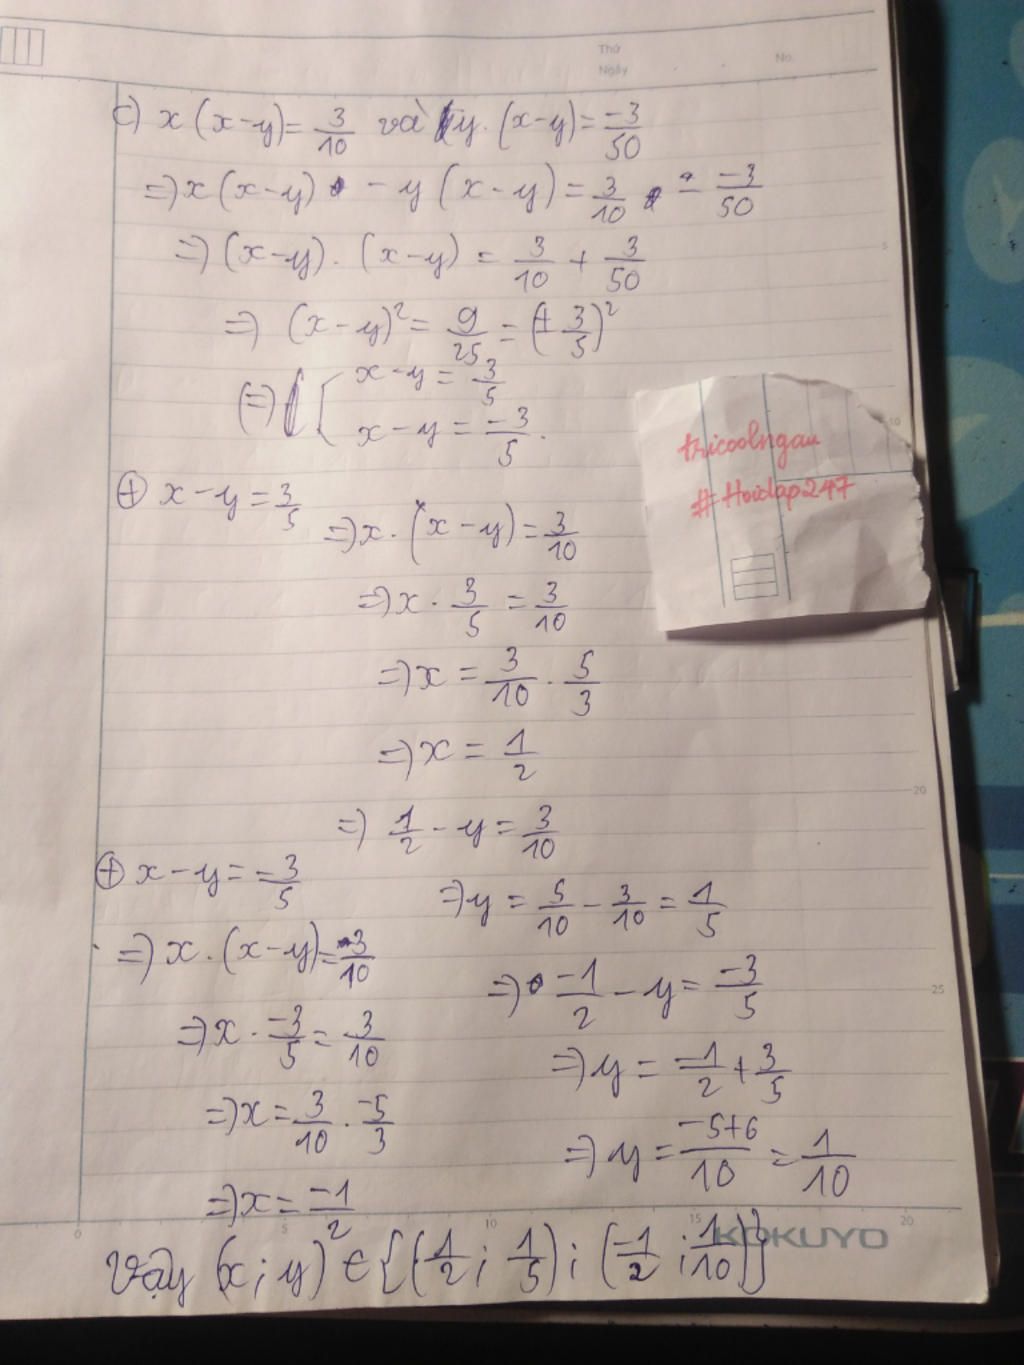 Thứ
Ngày
No.
c) x(x-y) = 3/10 và y.(x-y) = -3/50
=> x(x-y) - y(x-y) = 3/10 - -3/50
=> (x-y).(x-y) = 3/10 + 3/50
=> (x-y)² = 9/25 = (± 3/5)²
(=) [ x-y = 3/5
x-y = -3/5.
tricoolngau
#Hoidap247
⊕ x-y = 3/5
=> x.(x-y) = 3/10
=> x. 3/5 = 3/10
=> x = 3/10 . 5/3
=> x = 1/2
=> 1/2 - y = 3/10
=> y = 5/10 - 3/10 = 1/5
⊕ x-y = -3/5
=> x.(x-y) = 3/10
=> x. -3/5 = 3/10
=> x = 3/10 . -5/3
=> x = -1/2
=> -1/2 - y = -3/5
=> y = -1/2 + 3/5
=> y = -5+6/10 = 1/10
Vậy (x;y) ∈ {(1/2; 1/5); (-1/2; 1/10)}
KOKUYO
5
10
20
25
0
5
10
15
20